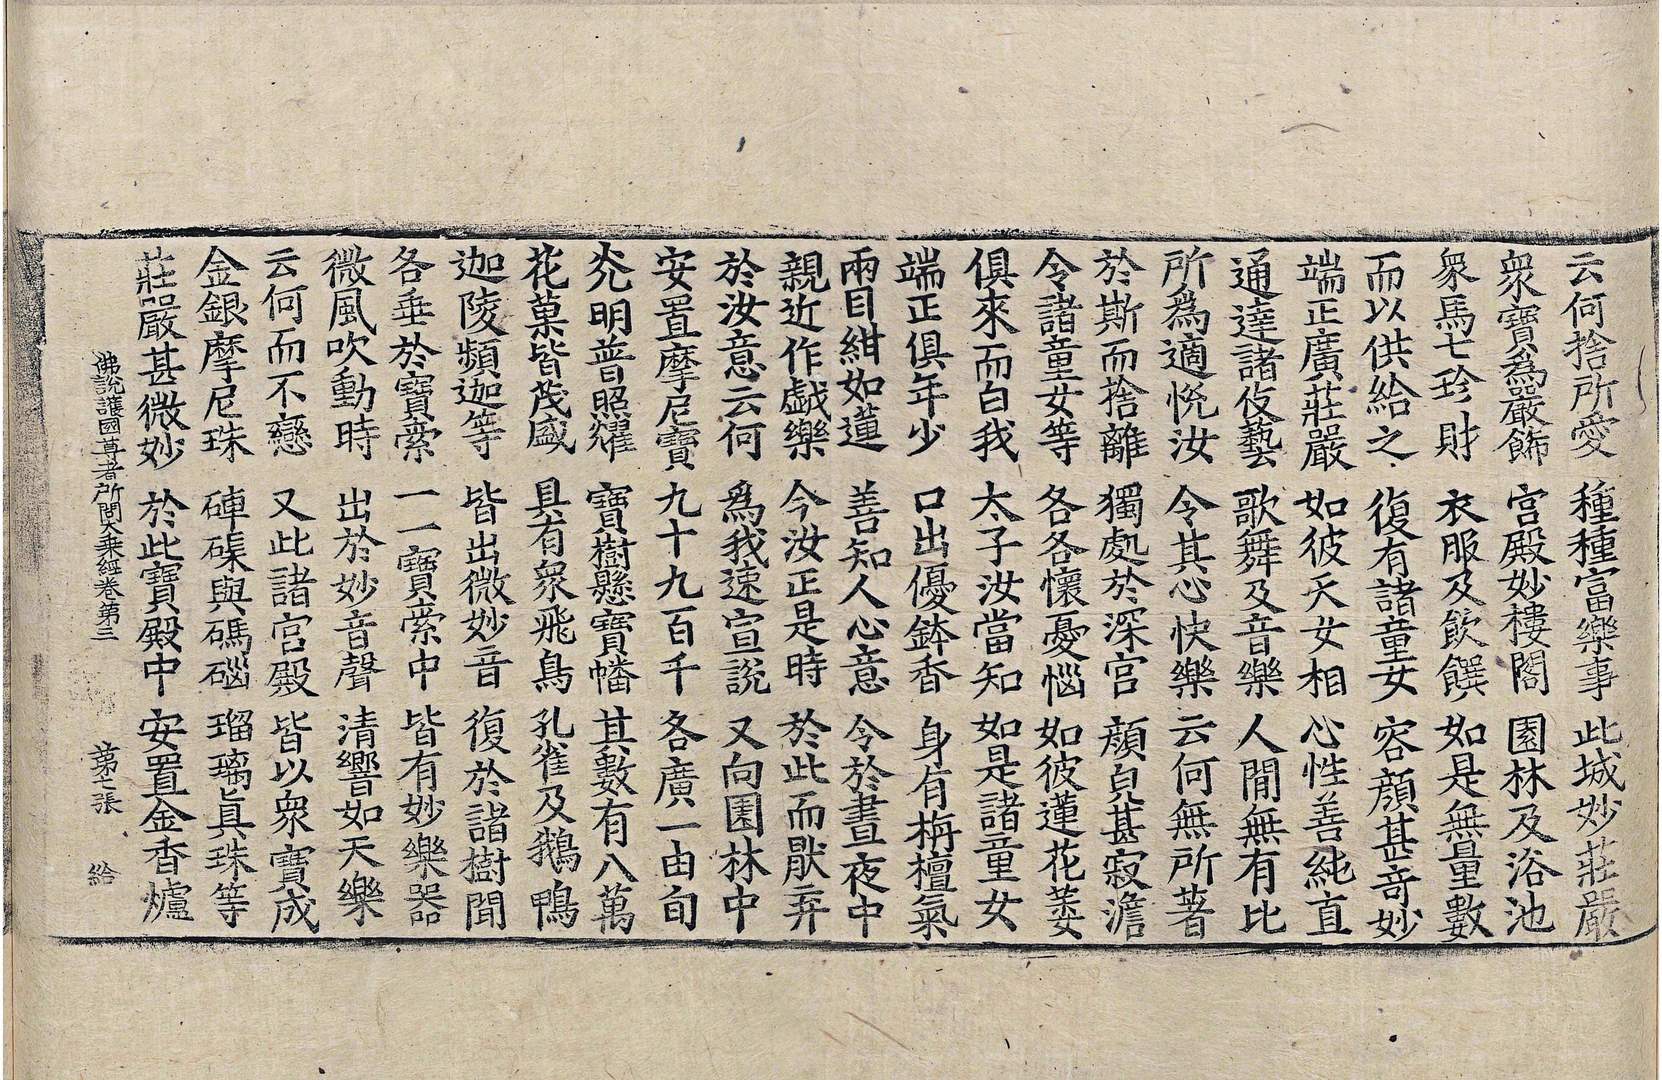 云何捨所愛 種種富樂事 此城妙莊嚴
衆寶爲嚴飾 宮殿妙樓閣 園林及浴池
象馬七珍財 衣服及飲饌 如是無量數
而以供給之 復有諸童女 容顏甚奇妙
端正廣莊嚴 如彼天女相 心性善純直
通達諸伎藝 歌舞及音樂 人間無有比
所爲適悅汝 令其心快樂 云何無所著
於斯而捨離 獨處於深宮 顏皃甚寂澹
令諸童女等 各各懷憂惱 如彼蓮花萎
俱來而白我 太子汝當知 如是諸童女
端正俱年少 口出優鉢香 身有栴檀氣
兩目紺如蓮 善知人心意 令於晝夜中
親近作戲樂 今汝正是時 於此而猒弃
於汝意云何 爲我速宣說 又向園林中
安置摩尼寶 九十九百千 各廣一由旬
光明普照耀 寶樹懸寶幡 其數有八萬
花菓皆茂盛 具有衆飛鳥 孔雀及鵝鴨
迦陵頻迦等 皆出微妙音 復於諸樹間
各垂於寶索 一一寶索中 皆有妙樂器
微風吹動時 出於妙音聲 清響如天樂
云何而不戀 又此諸宮殿 皆以衆寶成
金銀摩尼珠 硨磲與碼碯 瑠璃真珠等
莊嚴甚微妙 於此寶殿中 安置金香爐
佛說護國尊者所問大乘經卷第三 第七張 給